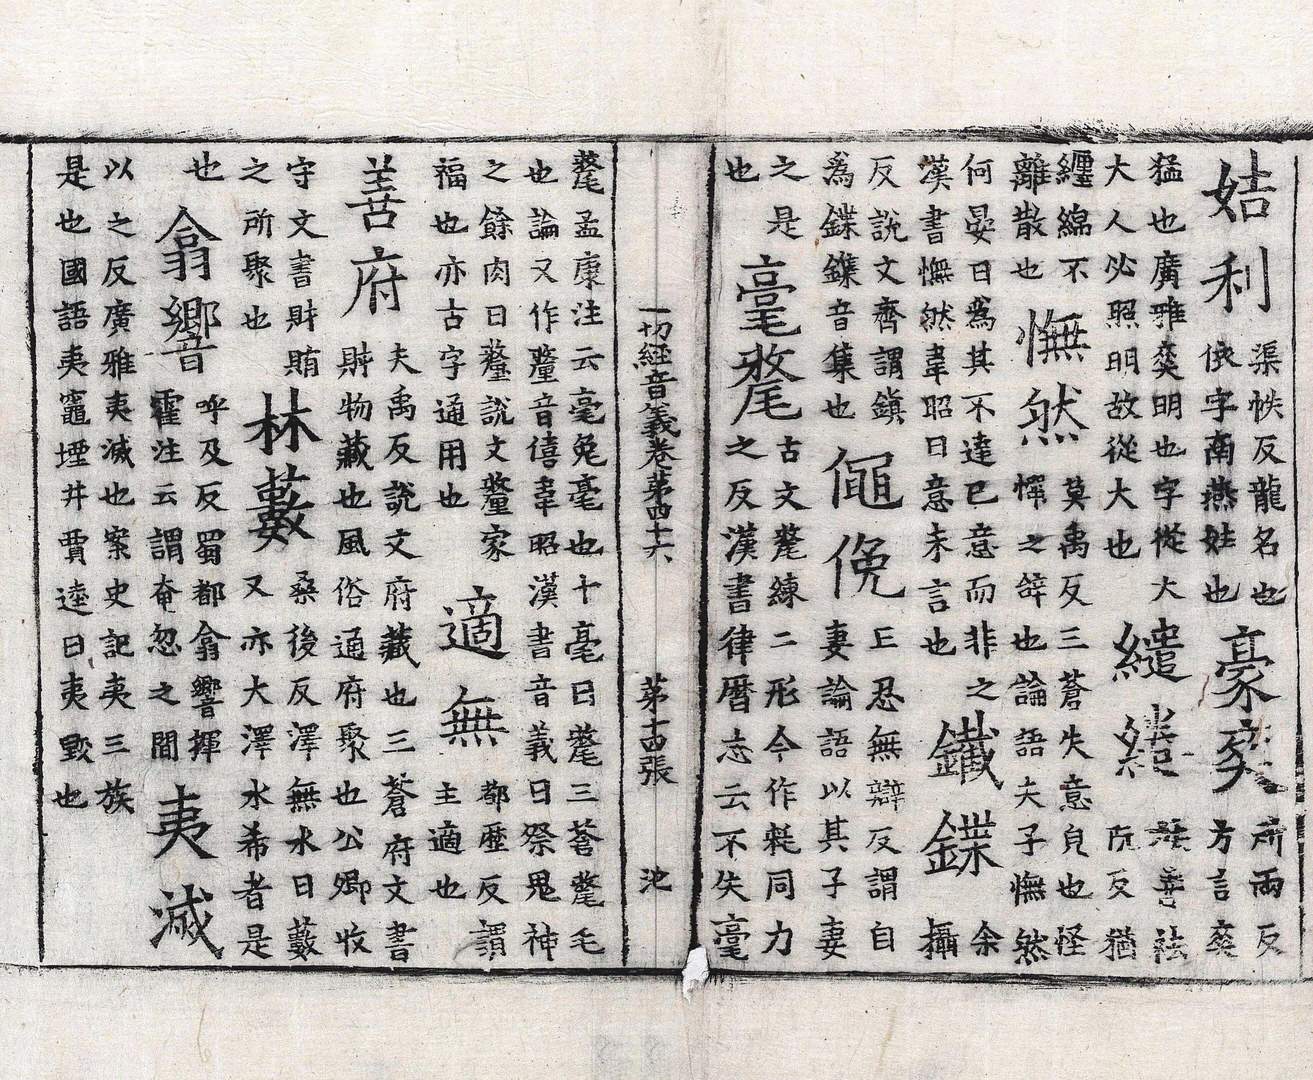 姞利
渠恞反龍名也
依字南燕姓也
豪爽
所兩反
方言爽
猛也廣雅爽明也字從大
大人必照明故從大也
繾綣
善祛
阮反猶
纒綿不
離散也
憮然
莫禹反三蒼失意皃也怪
之辝也論語夫子憮然
何晏曰爲其不達已意而非之
漢書憮然韋昭曰意未言也
鐵鍱
余
攝
反說文齊謂鎮
爲鍱鏶音集也
僶俛
亡忍無辯反謂自
妻論語以其子妻
之是
也
毫氂
古文氂練二形今作耗同力
之反漢書律曆志云不失毫
一切經音義卷第四十六 第十四張 池
氂孟康注云毫兔毫也十毫曰氂三蒼氂毛
也論又作釐音僖韋昭漢書音義曰祭鬼神
之餘肉曰釐說文釐家
福也亦古字通用也
適無
都歷反謂
主適也
善府
夫禹反說文府藏也三蒼府文書
財物藏也風俗通府聚也公卿收
守文書財賄
之所聚也
林藪
桑後反澤無水曰藪
又亦大澤水希者是
也
翕響
呼及反蜀都翕響揮
霍注云謂奄忽之間
夷滅
以之反廣雅夷滅也案史記夷三族
是也國語夷竈堙井賈逵曰夷毀也